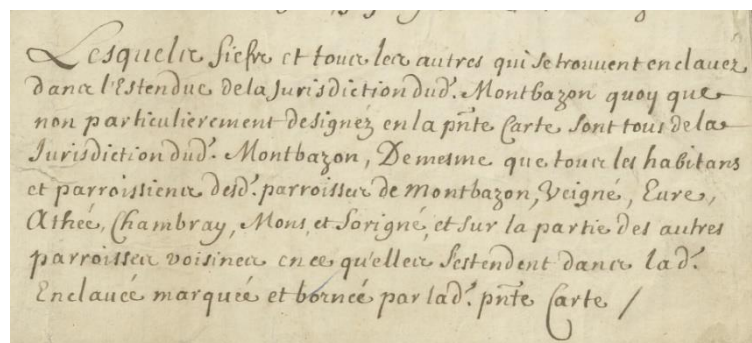 Lesquels fiefs et tous les autres qui se trouvent enclavez
dans l'Estendue de la Jurisdiction dud.^t Montbazon quoy que
non particulierement designéz en la pñte Carte sont tous de la
Jurisdiction dud.^t Montbazon, De mesme que tous les habitans
et parroissiens desd.^t parroisses de Montbazon, Veigné, Evre,
Athée, Chambray, Mons, et Sorigné, et sur la partie des autres
parroisses voisines en ce qu'elles s'estendent dans lad.^t
Enclavée marquée et bornée par lad.^t pñte Carte /